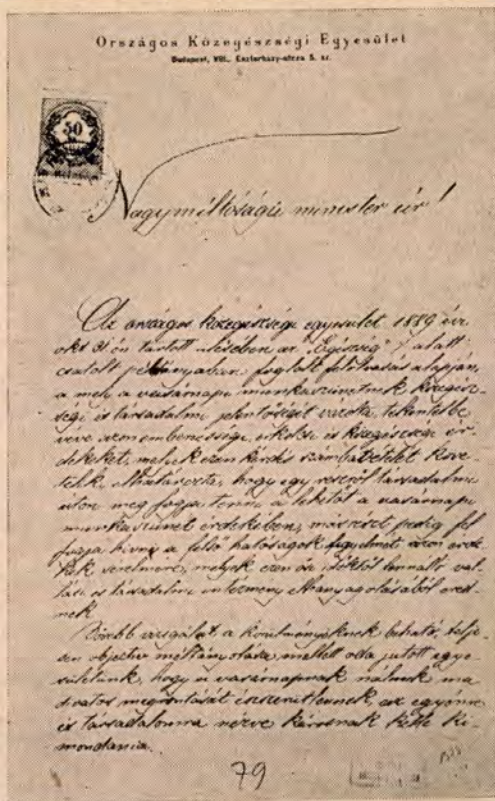 Országos Közegészségi Egyesület
Budapest, VIII., Eszterházy-utcza 5. sz.
50
Nagyméltóságú minister úr!
Az országos közegészségi egyesület 1889 évi
okt 31 én tartott ülésében az "Egészség" /. alatt
csatolt példányában foglalt felolvasás alapján,
a mely a vasárnapi munkaszünetnek közegész-
ségi és társadalmi jelentőségét vázolta, tekintetbe
véve azon emberiességi, erkölcsi és közegészségi ér-
dekeket, melyek ezen kérdés számbavételét köve-
telik, elhatározta, hogy egy részről társadalmi
úton meg fogja tenni a lehetőt a vasárnapi
munkaszünet érdekében, más részt pedig fel
fogja hívni a felső hatóságok figyelmét azon érde-
kek sérelmére, melyek ezen ős időktől fennálló val-
lási és társadalmi intézmény elhanyagolásából ered-
nek.
Több vizsgálat, a körülményeknek beható, telje-
sen objectiv méltánylása mellett oda jutott egye-
sületünk, hogy a vasárnapnak nálunk ma
divatos megrontását észszerűtlennek, az egyénre
és társadalomra nézve károsnak kelle ki-
mondania.
79